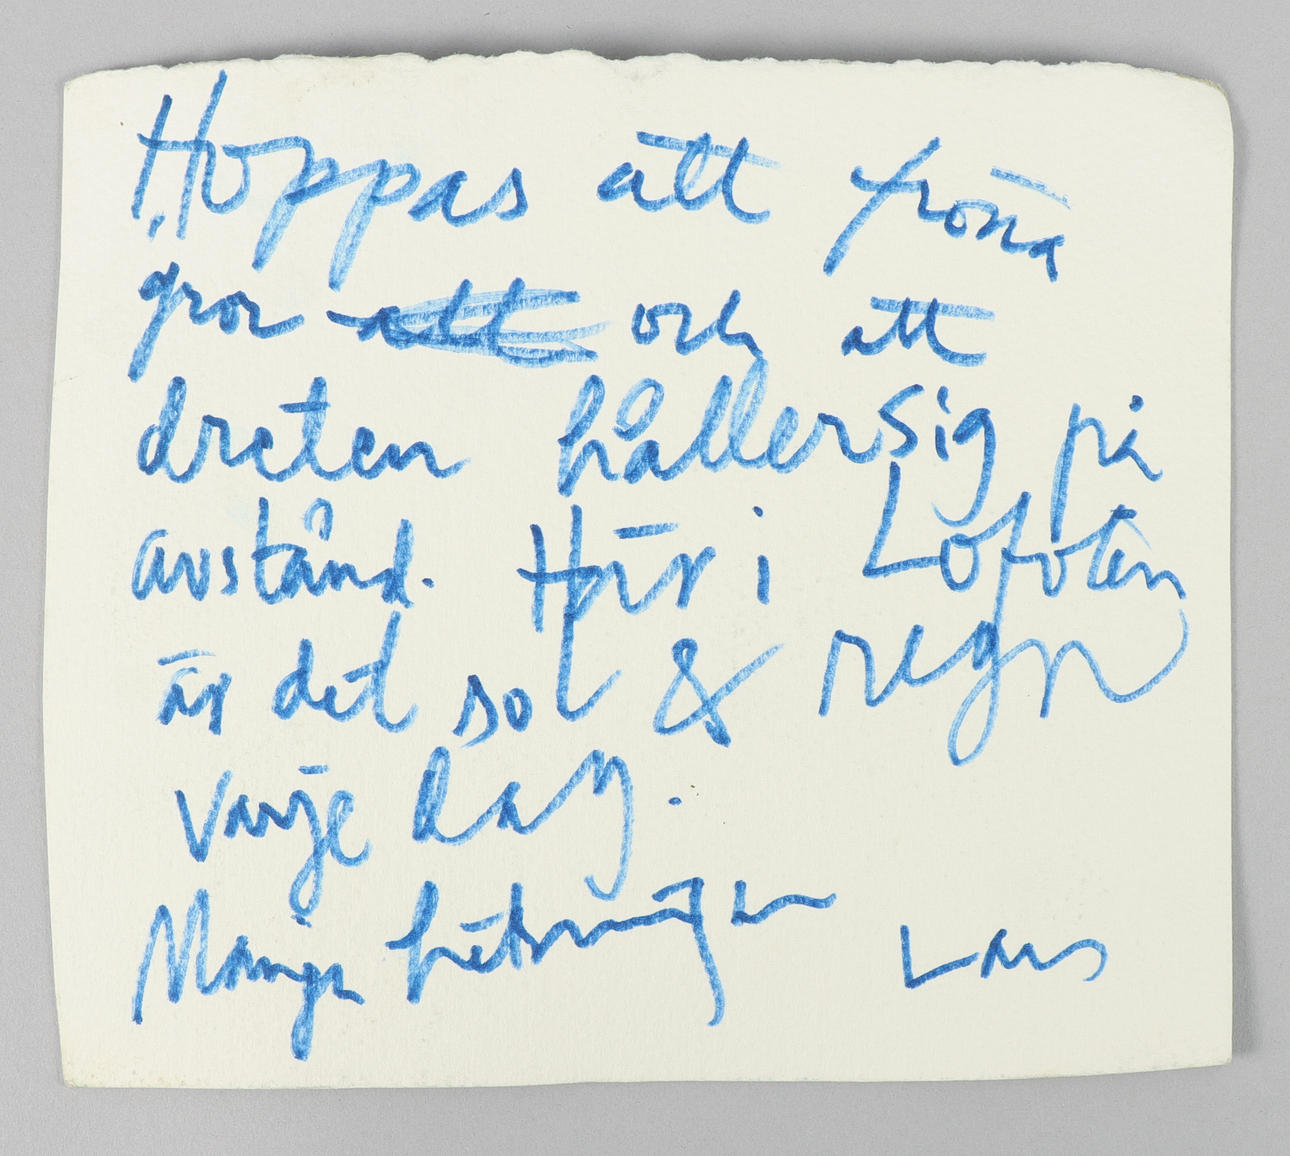 Hoppas att fröna
gror att och att
dreten håller sig på
avstånd. Här i Lofoten
är det sol & regn
varje dag.
Många hälsningar Lars